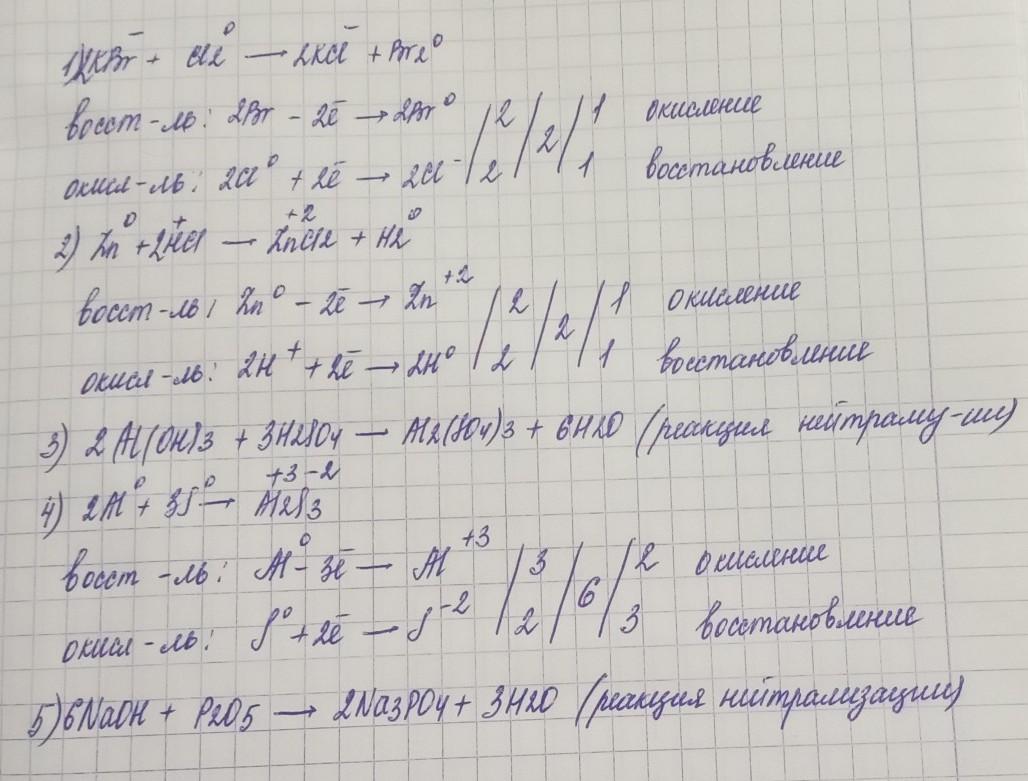 1) 2KBr⁻ + Cl2⁰ → 2KCl⁻ + Br2⁰
восст-ль: 2Br - 2ē → 2Br⁰ / 2 / 2 / 1 окисление
окисл-ль: 2Cl⁰ + 2ē → 2Cl⁻ / 2 / 1 восстановление
2) Zn⁰ + 2H⁺Cl — Zn⁺²Cl2 + H2⁰
восст-ль: Zn⁰ - 2ē → Zn⁺² / 2 / 2 / 1 окисление
окисл-ль: 2H⁺ + 2ē → 2H⁰ / 2 / 1 восстановление
3) 2Al(OH)3 + 3H2SO4 — Al2(SO4)3 + 6H2O (реакция нейтрализу-ии)
4) 2Al⁰ + 3S⁰ → Al2⁺³S3⁻²
восст-ль: Al⁰ - 3ē — Al⁺³ / 3 / 6 / 2 окисление
окисл-ль: S⁰ + 2ē — S⁻² / 2 / 3 восстановление
5) 6NaOH + P2O5 → 2Na3PO4 + 3H2O (реакция нейтрализации)